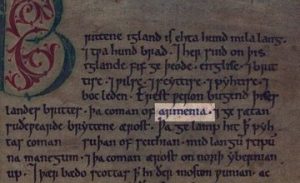 Brittene igland is ehta hund mila lang.
⁊ twa hund brad. ⁊ her sind on þis
iglande fif ge þeode. englisc. ⁊ brit
tisc. ⁊ wilsc. ⁊ scyttisc. ⁊ pyhtisc. ⁊
boc leden. Erest weron bugend þises
landes brittes. þa coman of armenia. ⁊ ge sætan
suðewearde bryttene ærost. Þa ge lamp hit ꝥ pyh
tas coman suþan of scithian. mid langū scipū
na manegum. ⁊ þa coman ærost on norþ ybernian
up. ⁊ þær bædo scottas ꝥ hi ðer moston wunian. ac